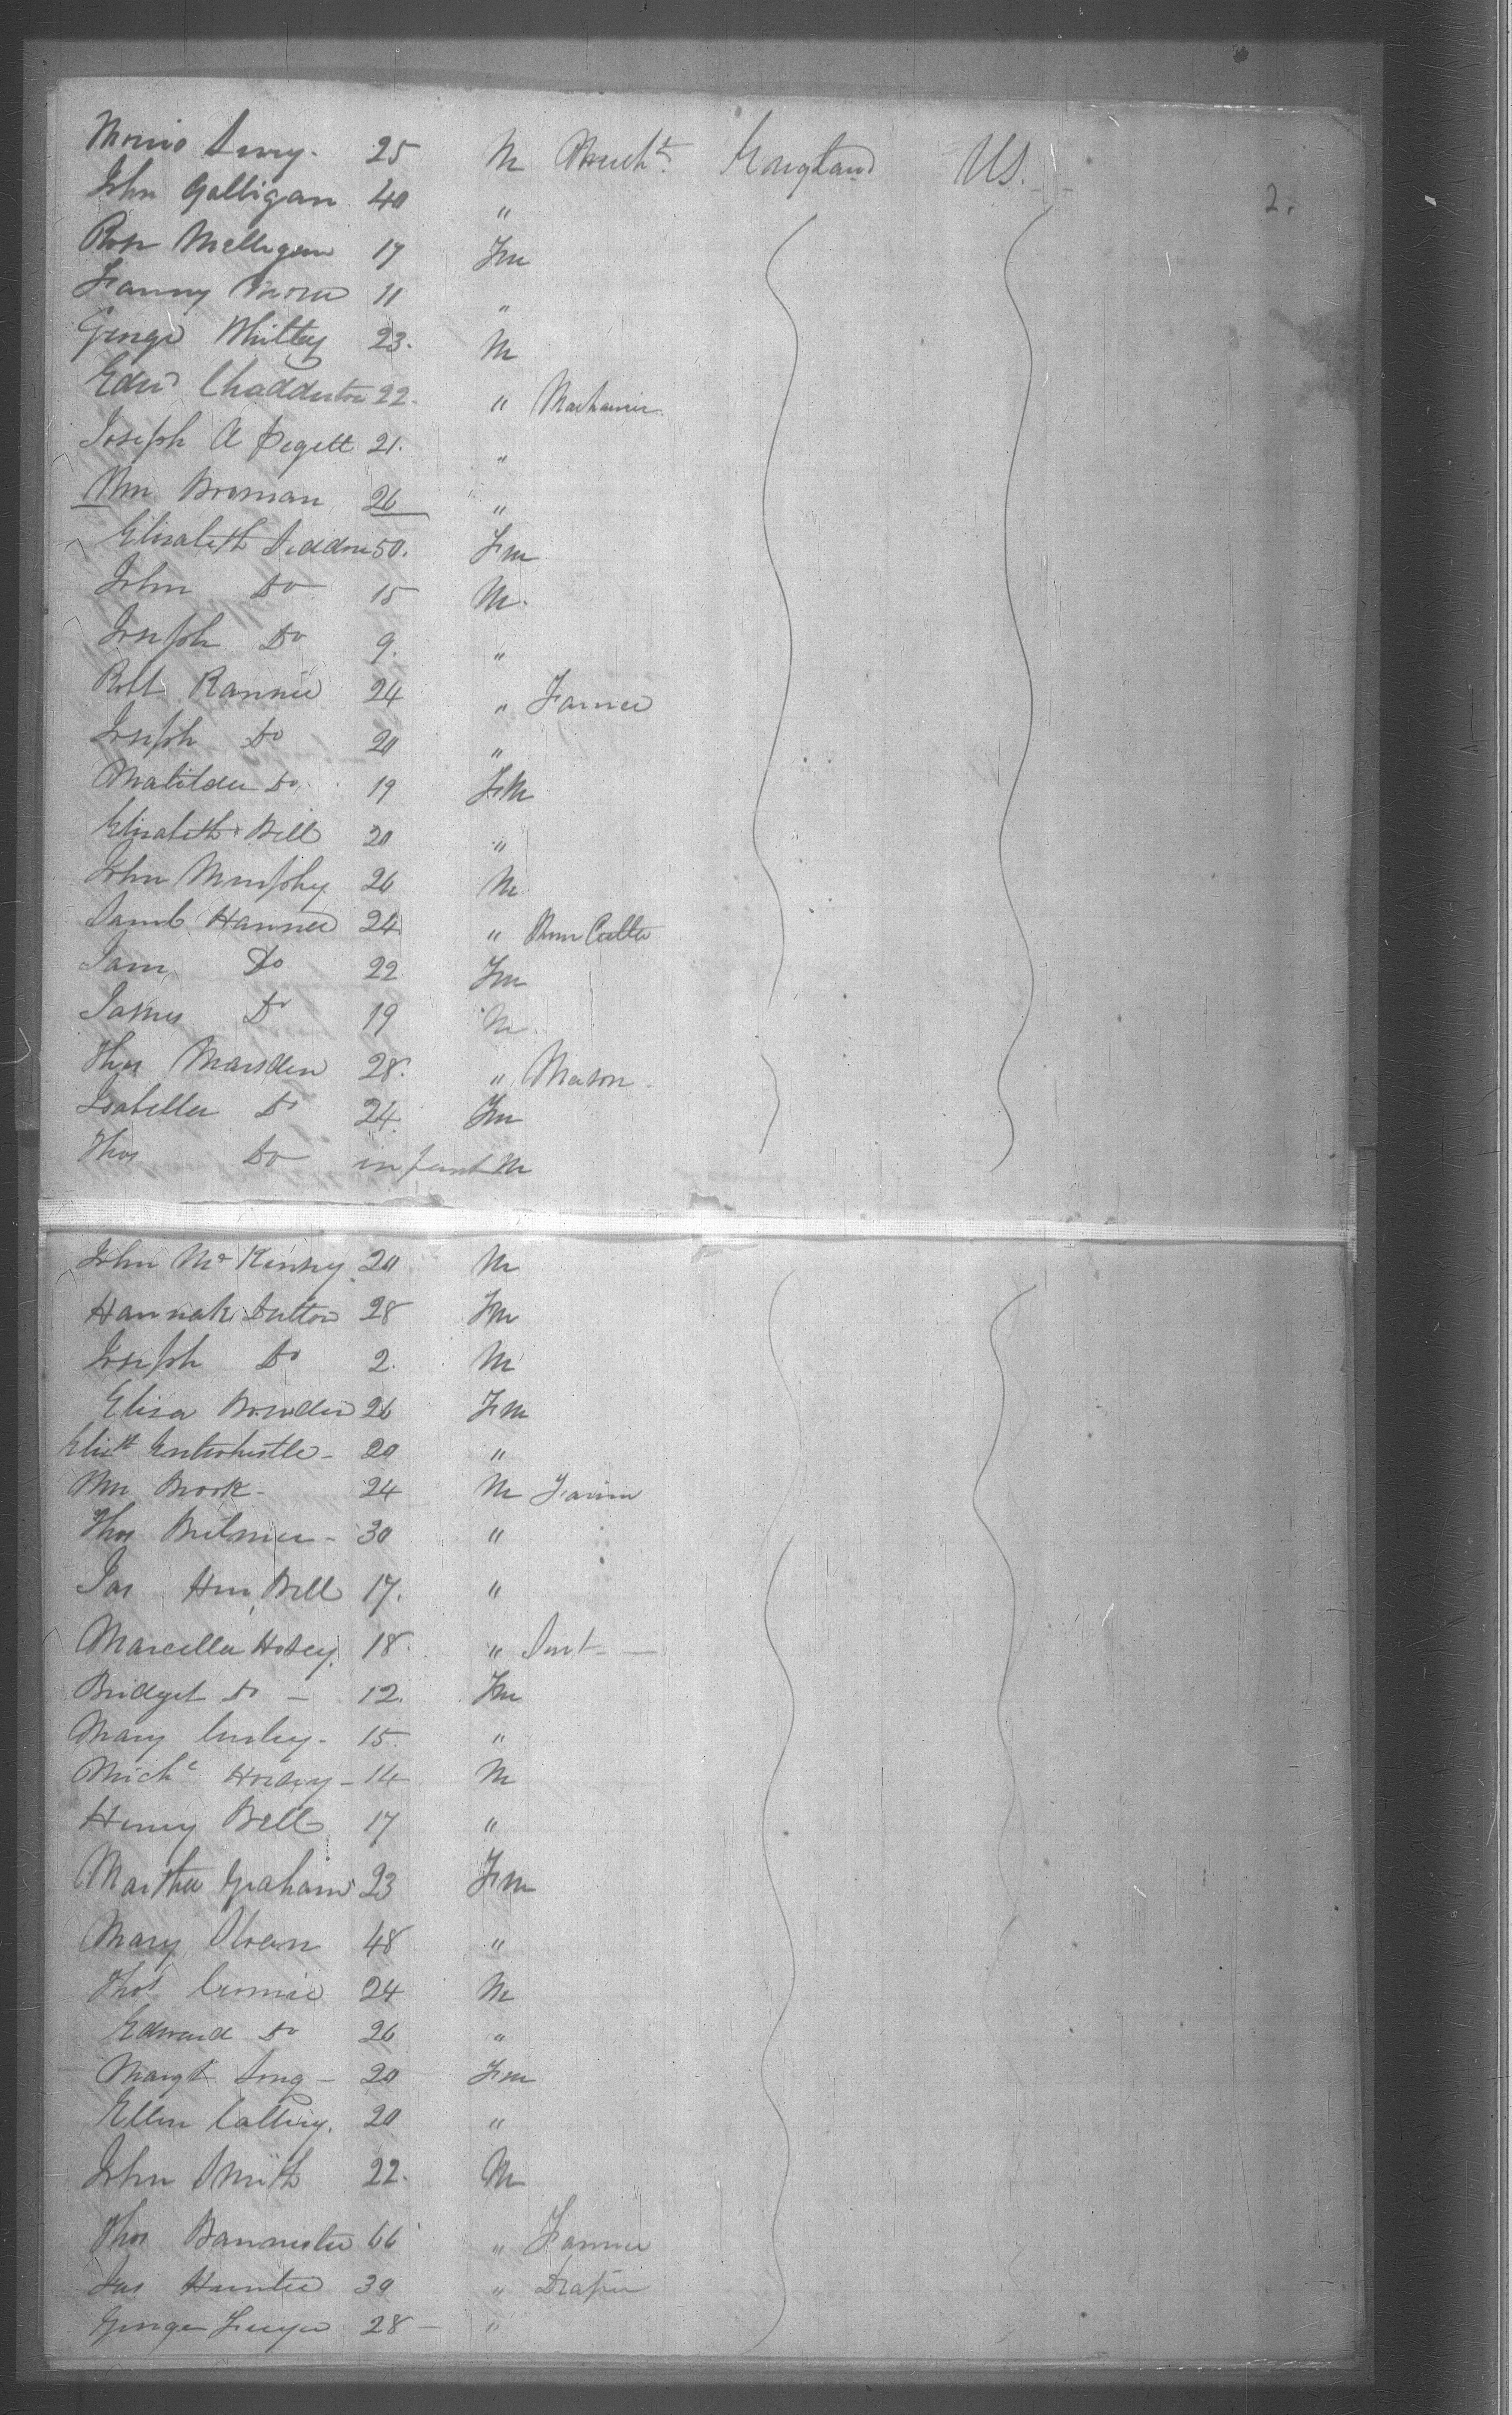 25 M England US.
2.
John Galligan 40 "
Milligan 17 Fm
Fanny 11 "
George Whitty 23. M
Edwd Chadderton 22. " Mechanic
Joseph A Pigott 21. "
Wm 26 "
Elizabeth Siddon 50. Fm
John Do 15 M.
Joseph Do 9. "
Robt Rannie 24 " Farmer
Joseph Do 20 "
Matilda Do. 19 FM
Elizabeth Bell 20 "
John Murphy 26 M.
Saml Hanner 24 " Cutter
Jane Do 22 Fm
James Do 19 M
Thos Marsden 28. " Mason
Isabella Do 24. Fm
Thos Do infant M
John McKenny 20 M
Hannah Dutton 28 Fm
Joseph Do 2. M
Eliza Bowden 26 Fm
Elizth Entwhistle - 20 "
Wm Brook - 24 M Farmer
Thos - 30 "
Jas Hen Bell 17. "
Marcella Hosey 18. "
Bridget Do - 12. Fm
Mary 15. "
Michl - 14 M
Henry Bell 17 "
Martha Graham 23 Fm
Mary Sloan 48 "
Thos Cromie 24 M
Edward Do 26 "
Margt Long - 20 Fm
Ellen 20 "
John Smith 22. M
Thos Bannister 66 " Farmer
Jas Hunter 30 " Draper
George 28 - "